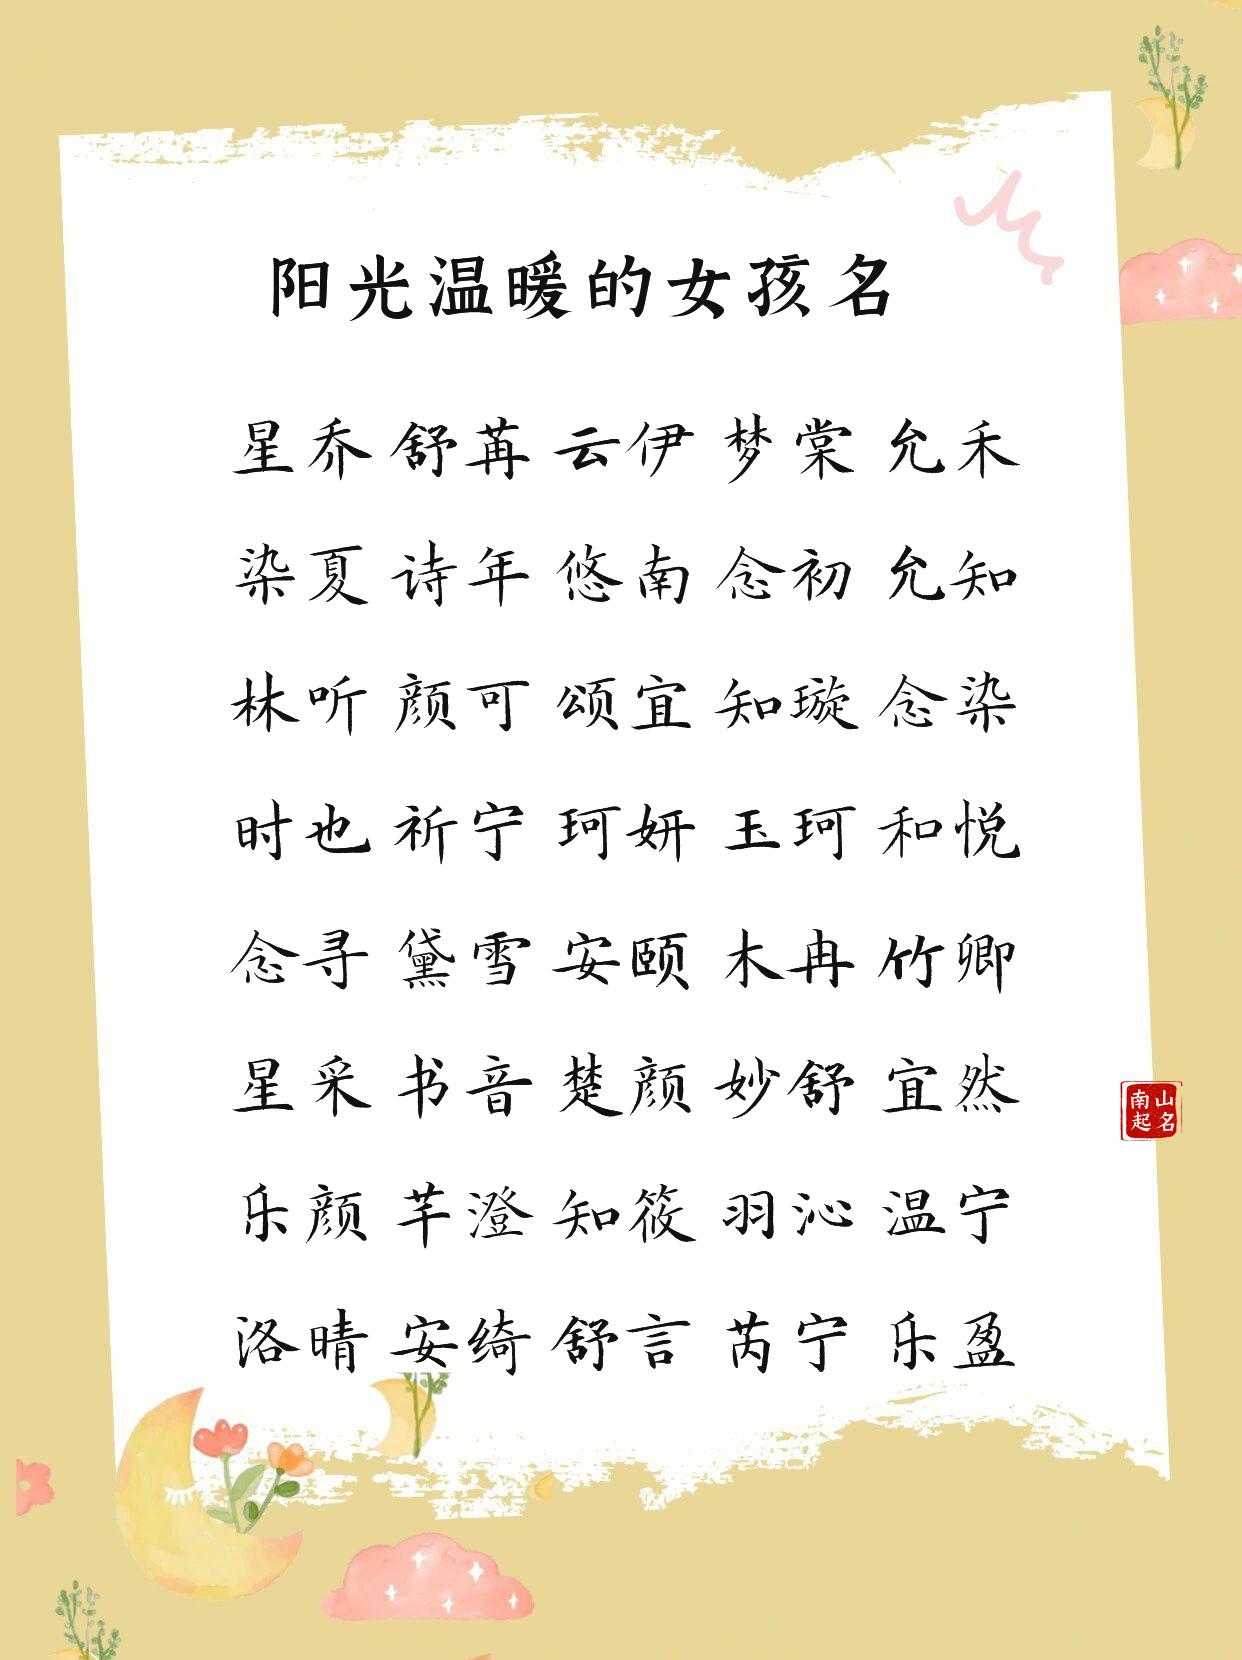 阳光温暖的女孩名
星乔 舒苒 云伊 梦棠 允禾
染夏 诗年 悠南 念初 允知
林听 颜可 颂宜 知璇 念染
时也 祈宁 珂妍 玉珂 和悦
念寻 黛雪 安颐 木冉 竹卿
星采 书音 楚颜 妙舒 宜然
乐颜 芊澄 知筱 羽沁 温宁
洛晴 安绮 舒言 芮宁 乐盈
南山起名